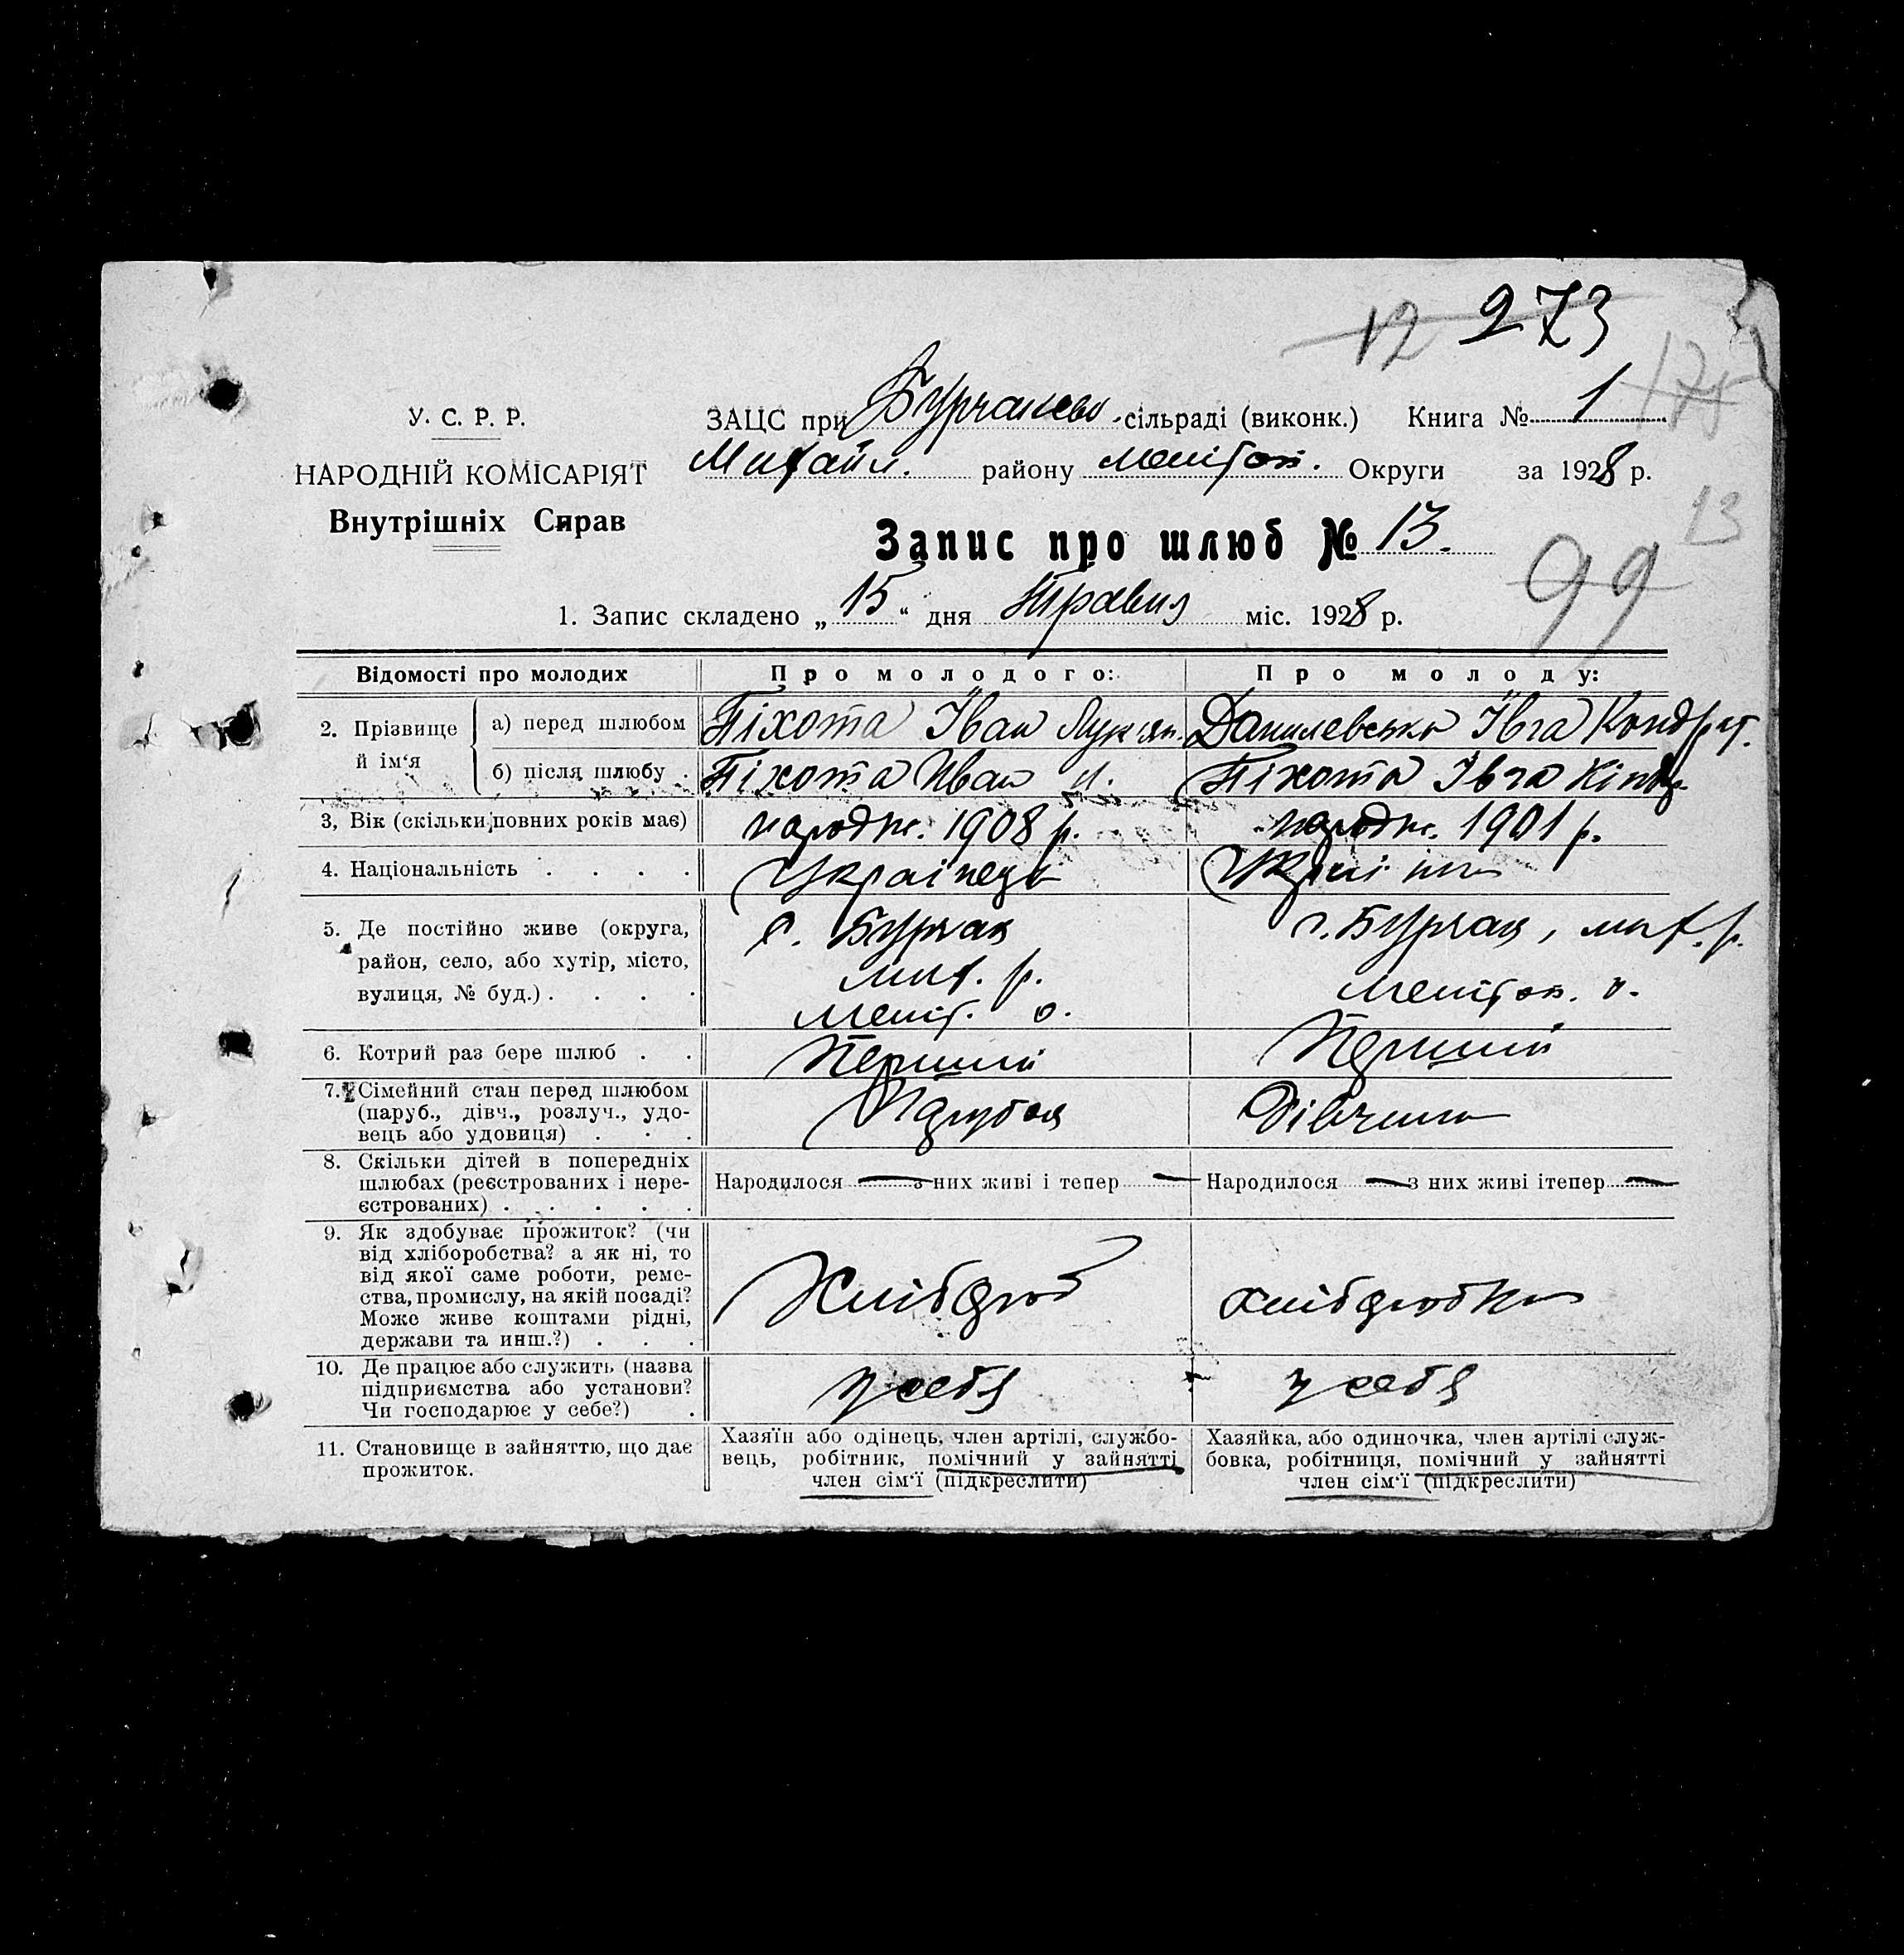 12 273
175
У. С. Р. Р.
НАРОДНІЙ КОМІСАРІЯТ
Внутрішніх Справ
ЗАЦС при Бурчацькі сільраді (виконк.) Книга № 1
Михайл. району Мелітоп. Округи за 1928 р.
13
Запис про шлюб № 13.
99
1. Запис складено „ 15 “ дня Травня міс. 1928 р.
Відомості про молодих
Про молодого:
Про молоду:
2. Прізвище й ім‘я
а) перед шлюбом
Піхота Іван Лук'ян.
Данилевська Івга Кондрат.
б) після шлюбу .
Піхота Иван Л.
Піхота Івга Кіндр.
3, Вік (скільки повних років має)
народж. 1908 р.
народж. 1901 р.
4. Національність . . . .
Українець
Українка
5. Де постійно живе (округа,
район, село, або хутір, місто,
вулиця, № буд.) . . . .
с. Бурчак
мих. р.
Меліт. о.
с. Бурчак, мих. р.
Мелітоп. о.
6. Котрий раз бере шлюб . .
Перший
Перший
7. Сімейний стан перед шлюбом
(паруб., дівч., розлуч., удо-
вець або удовиця) . . .
Парубок
Дівчина
8. Скільки дітей в попередніх
шлюбах (реєстрованих і нере-
єстрованих) . . . . .
Народилося — з них живі і тепер —
Народилося — з них живі ітепер —
9. Як здобуває прожиток? (чи
від хліборобства? а як ні, то
від якої саме роботи, реме-
ства, промислу, на якій посаді?
Може живе коштами рідні,
держави та инш.?) . . .
Хлібороб
хліборобка
10. Де працює або служить (назва
підприємства або установи?
Чи господарює у себе?) .
у себя
у себя
11. Становище в зайняттю, що дає
прожиток.
Хазяїн або одінець, член артілі, службо-
вець, робітник, помічний у зайнятті
член сім‘ї (підкреслити)
Хазяйка, або одиночка, член артілі служ-
бовка, робітниця, помічний у зайнятті
член сім‘ї (підкреслити)